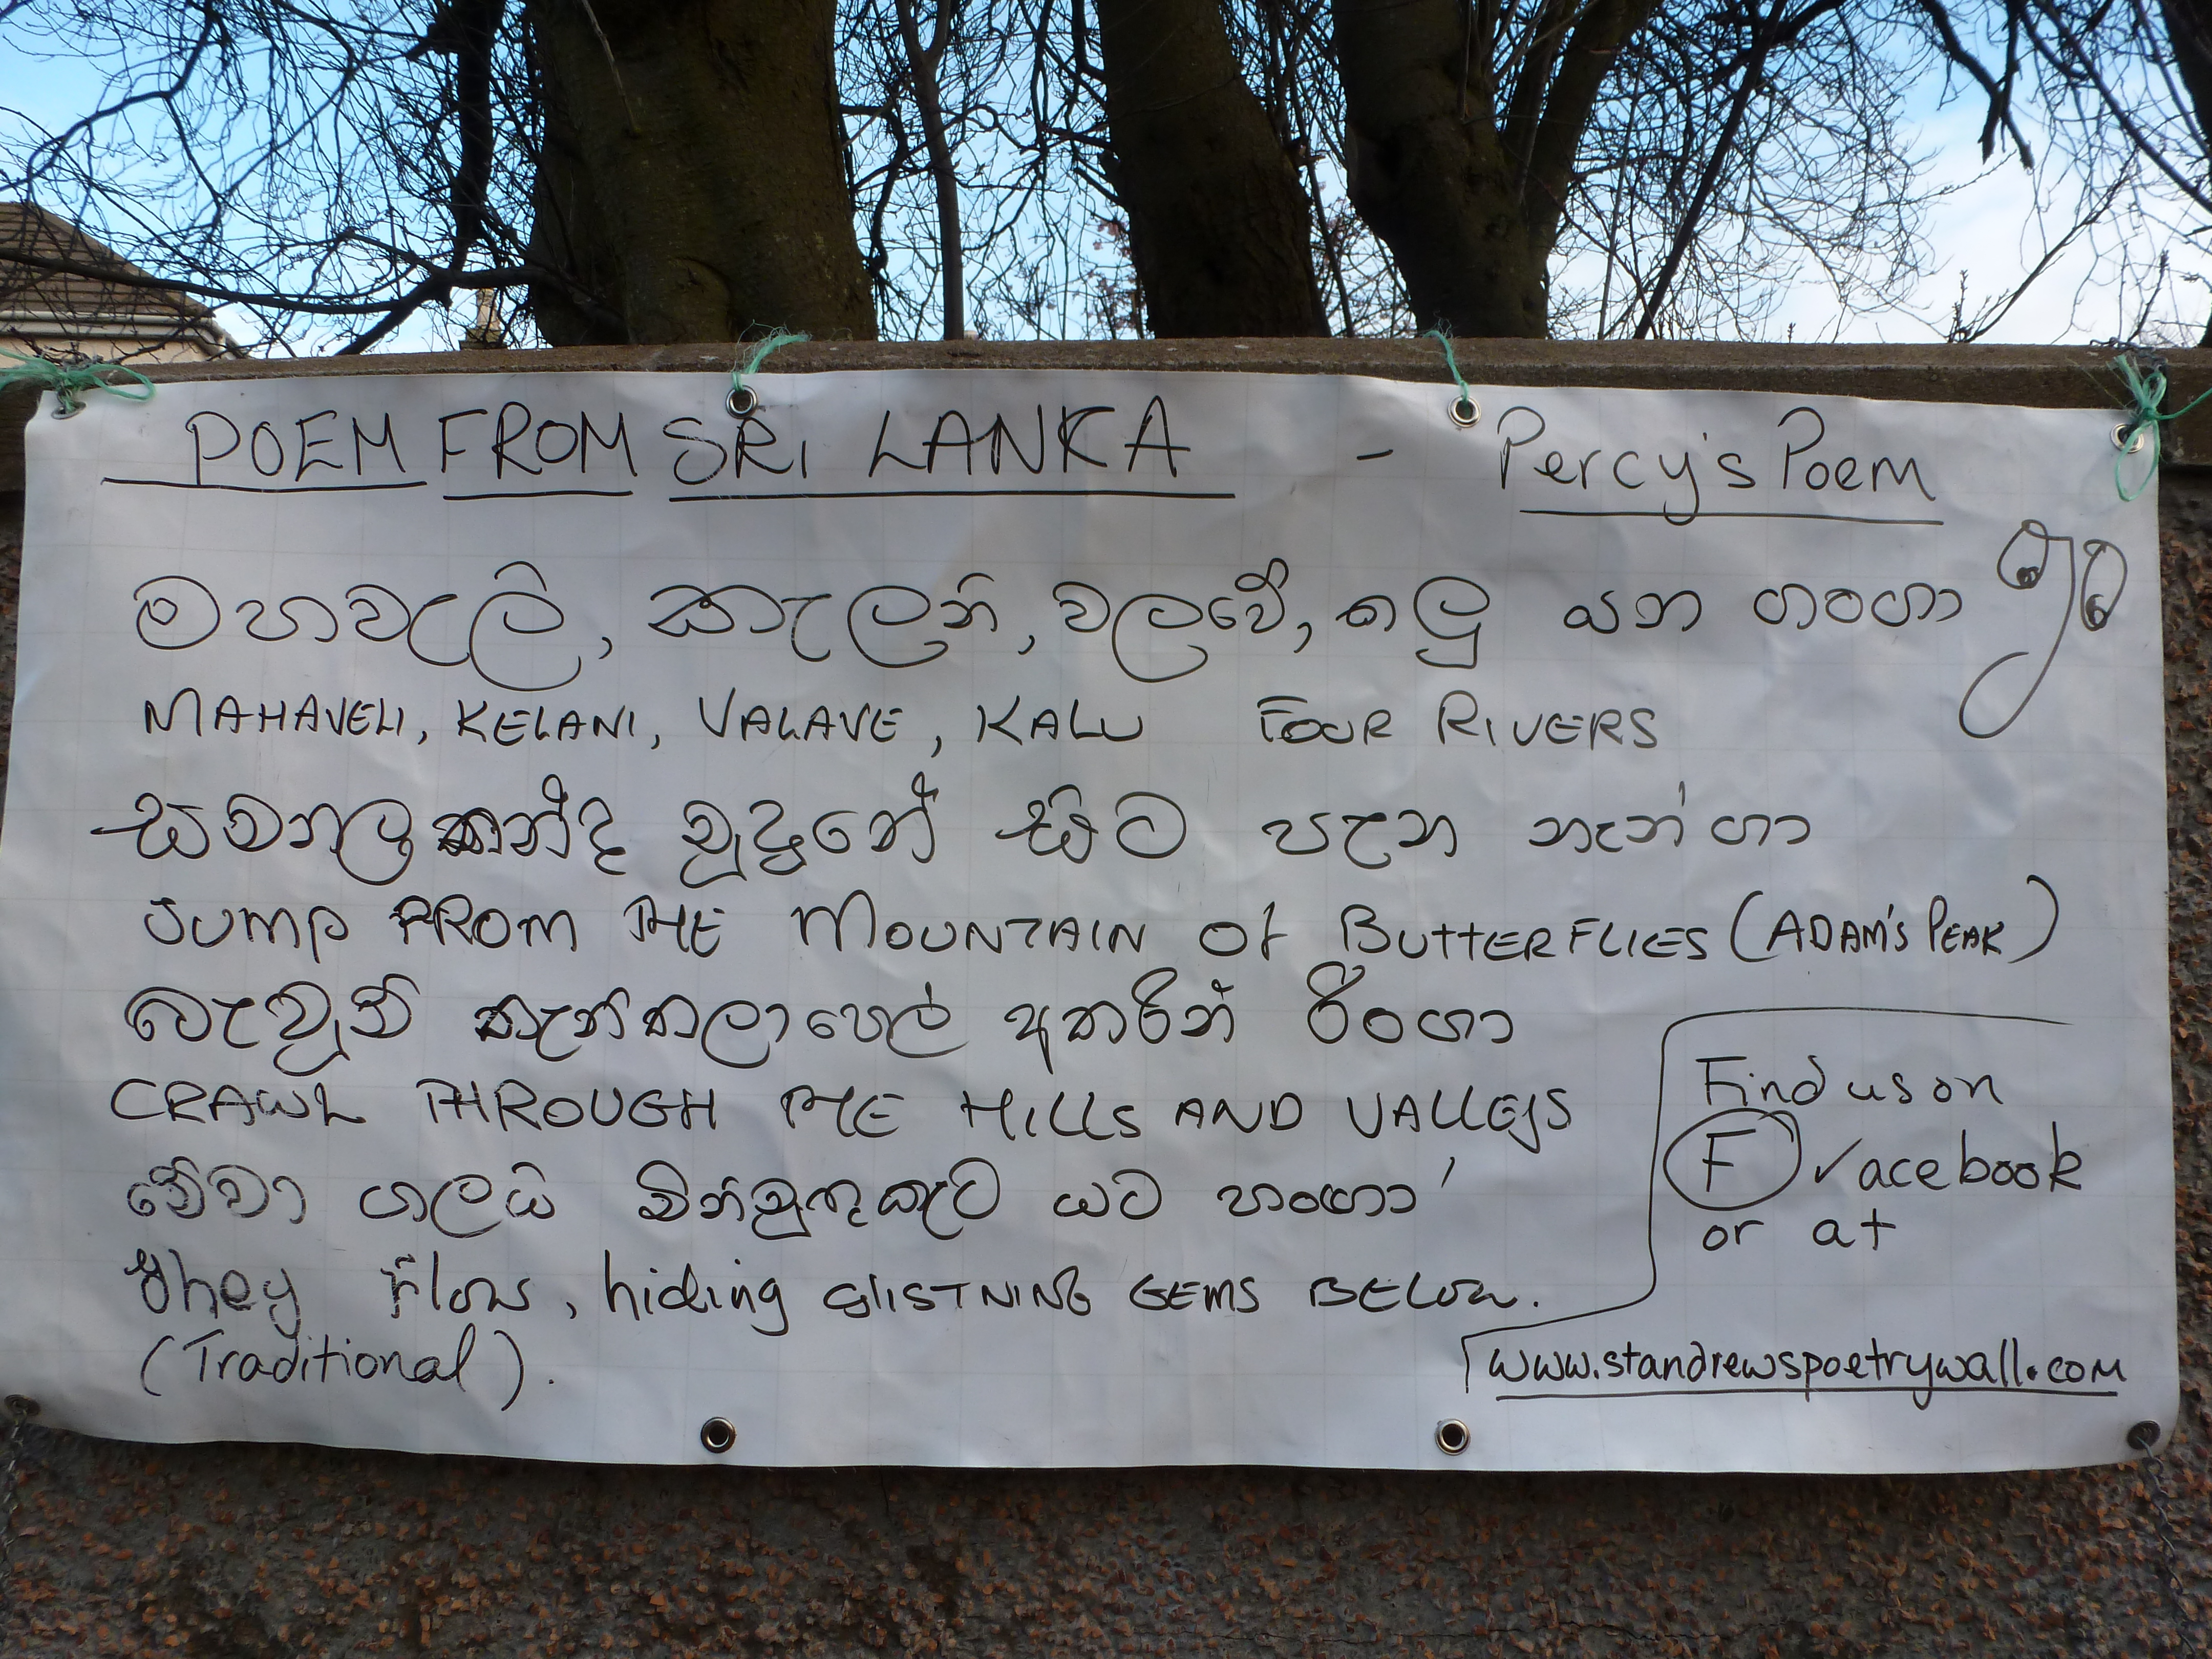 POEM FROM SRI LANKA - Percy's Poem
මහවැලි, කැලනි, වලවේ, කලු යන ගංගා
MAHAVELI, KELANI, VALAVE, KALU FOUR RIVERS
සමනල කන්ද මුදුනේ සිට පැන නැන්ගා
JUMP FROM THE MOUNTAIN Of BUTTERFLIES (ADAM'S PEAK)
බැවුම් කැන් කලාහෙල් අතරින් රිංගා
CRAWL THROUGH THE HILLS AND VALLEYS
මේවා ගලයි මිනිමුතුකැට යට හංගා
they flow, hiding GLISTNING GEMS BELOW.
(Traditional).
Find us on
F acebook
or at
www.standrewspoetrywall.com